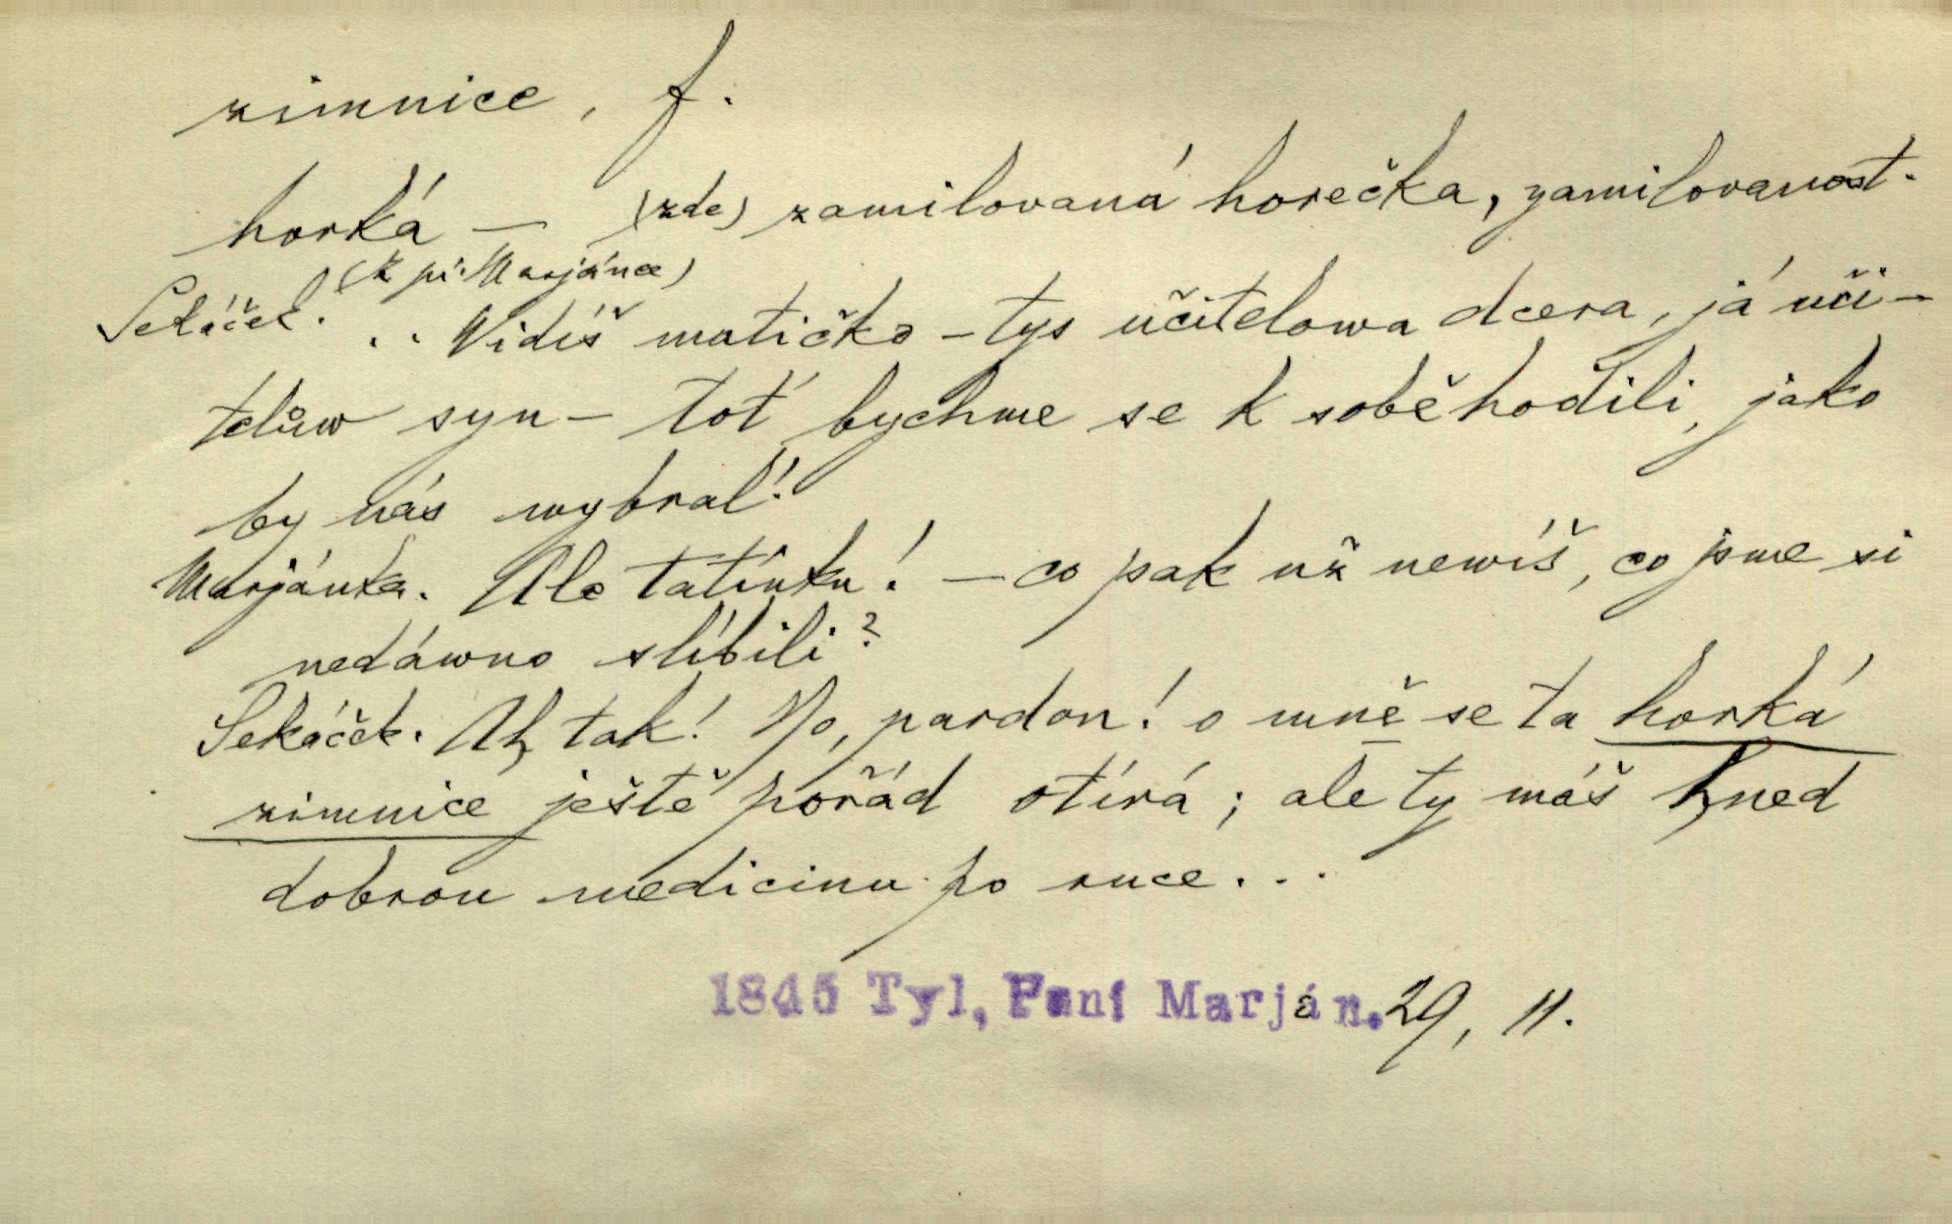 zimnice, f.
horká — (zde) zamilovaná horečka, zamilovanost.
(k pí. Marjánce)
Sekáček. .. Vidíš matičko – tys učitelowa dcera, já uči-
telůw syn – toť bychme se k sobě hodili, jako
by nás wybral!
Marjánka. Ale tatínku! — co pak už newíš, co jsme si
nedáwno slíbili?
Sekáček. Ah tak! No, pardon! o mně se ta horká
zimnice ještě pořád otírá; ale ty máš hned
dobrou medicinu po ruce...
1845 Tyl, Paní Marján. 29, 11.